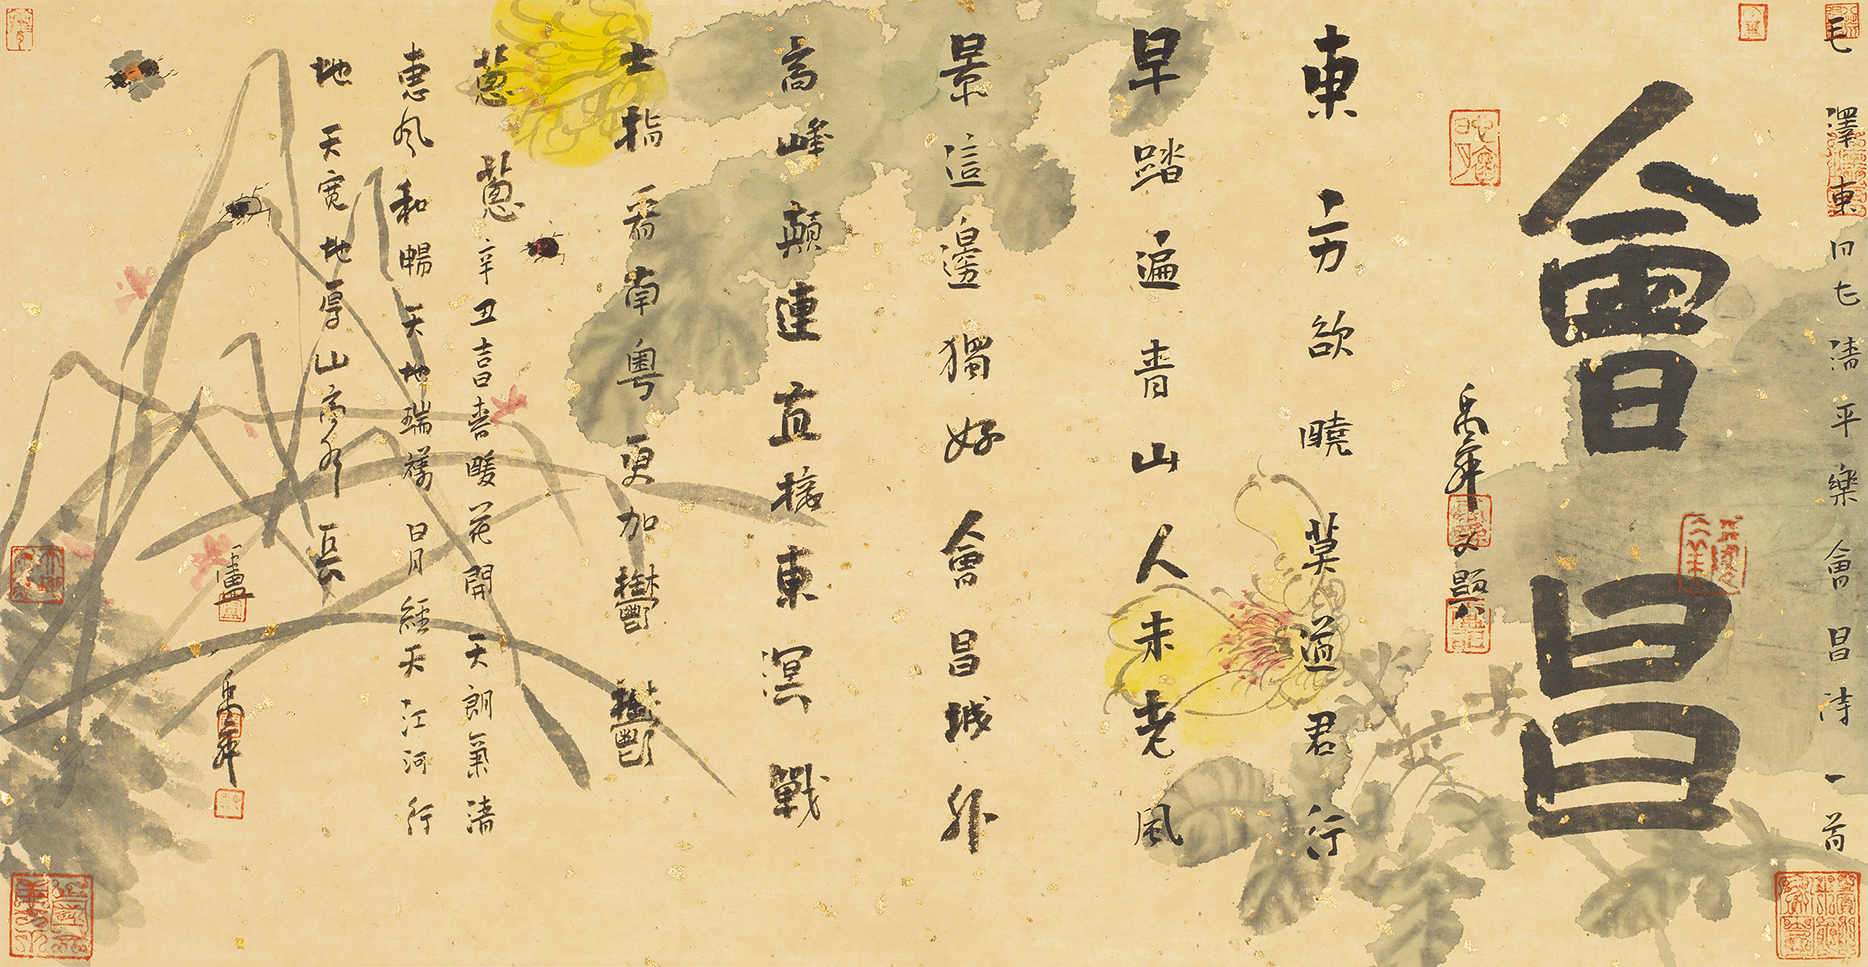 毛澤東同志清平樂會昌詩一首
會昌
禹舜又題
東方欲曉莫道君行
早踏遍青山人未老風
景這邊獨好會昌城外
高峰顛連直接東溟戰
士指看南粵更加鬱鬱
蔥蔥辛丑吉日春暖花開天朗氣清
惠风和暢天地瑞祥日月經天江河行
地天宽地厚山高水長
盧禹舜